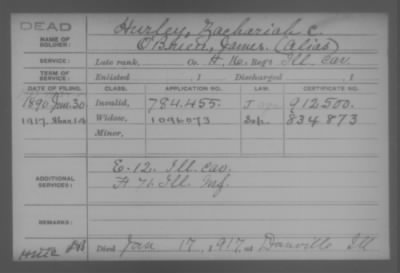 DEAD
Hurley, Zachariah C.
NAME OF SOLDIER: O'Brien, James. (Alias)
SERVICE: Late rank, Co. H, Reg't Ill. Cav.
TERM OF SERVICE: Enlisted , 1 Discharged , 1
DATE OF FILING. CLASS. APPLICATION NO. LAW. CERTIFICATE NO.
1890 Jun. 30 Invalid, 784.455. J 912.500.
1917. 14 Widow, 1096073 834873
Minor,
E-12. Ill. Cav.
ADDITIONAL SERVICES: H 76 Ill Inf.
REMARKS:
Died Jan 17, 1917, at Danville Ill